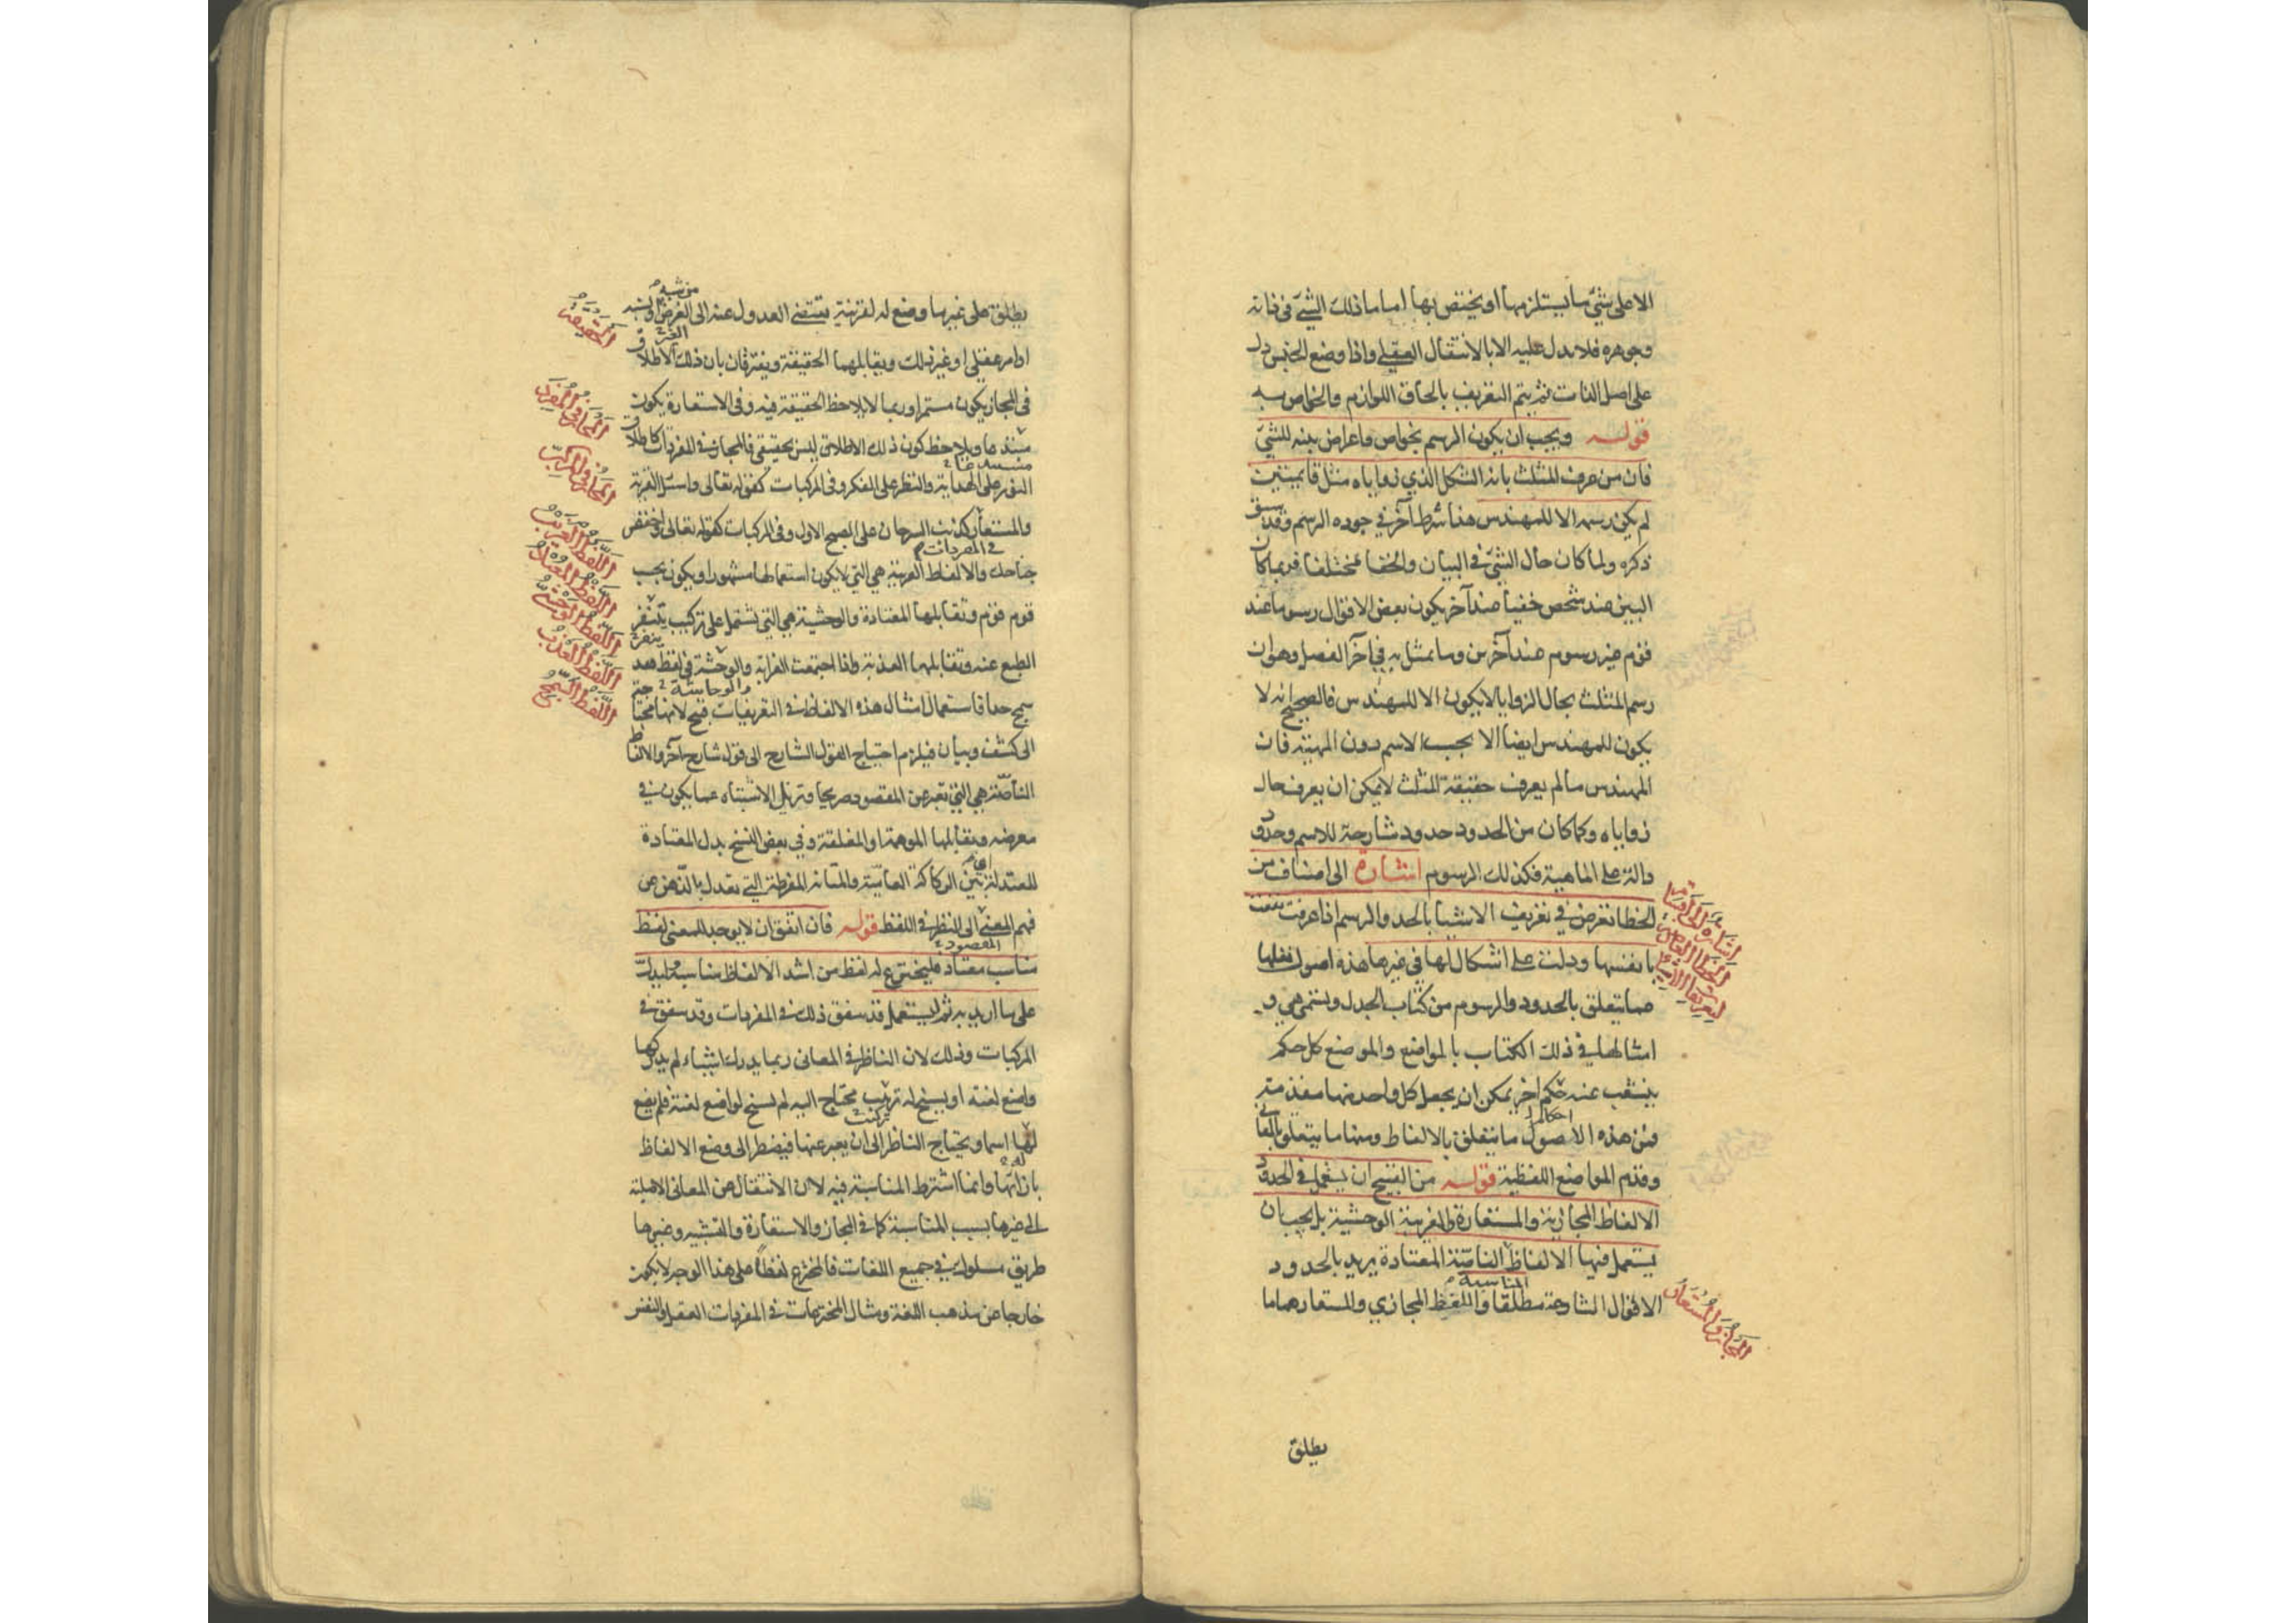 الا على شيء ما يستلزمها او يختص بها اما ما ذلك الشيء في ذاته
وجوهره فلا يدل عليه الا بالانتقال العقلي واذا وضع الجنس دل
على اصل الذات ثم يتم التعريف بالحاق اللوازم والخواص به
قوله ويجب ان يكون الرسم بخواص واعراض بينه للشيء
فان من عرف المثلث بانه الشكل الذي زواياه مثل قايمتين
لم يكن رسمه الا للمهندس هذا شرط آخر في جوده الرسم وقد سبق
ذكره ولما كان حال الشيء في البيان والخفا مختلفا فربما كان
البين عند شخص خفيا عند آخر يكون بعض الاقوال رسوما عند
قوم غير رسوم عند آخرين وما يمثل به في آخر الفصل وهو ان
رسم المثلث بحال الزوايا لا يكون الا للمهندس فالصحيح انه لا
يكون للمهندس ايضا الا بحسب الاسم دون المهية فان
المهندس ما لم يعرف حقيقة المثلث لا يمكن ان يعرف حال
زواياه وكما كان من الحدود حدود شارحة للاسم وحدود
دالة على الماهية فكذلك الرسوم اشارة الى اصناف من
الخطا تعرض في تعريف الاشيا بالحد والرسم اذا عرفت نفعت
بانفسها ودلت على اشكال لها في غيرها هذه اصول نقلها
مما يتعلق بالحدود والرسوم من كتاب الجدل وتسمى هي و
امثالها في ذلك الكتاب بالمواضع والموضع كل حكم
ينشعب عنه حكم اخر يمكن ان يجعل كل واحد منها مقدمة
احكام
فمن هذه الاصول ما يتعلق بالالفاظ ومنها ما يتعلق بالمعاني
وقدم المواضع اللفظية قوله من القبيح ان يستعمل في الحدود
الالفاظ المجازية والمستعارة والغريبة الوحشية بل يجب ان
يستعمل فيها الالفاظ الناصة المعتادة يريد بالحدود
المناسبة
الاقوال الشارحة مطلقا واللفظ المجازي والمستعار هما ما
اشارة الى اصناف من
الخطا
تعريف الاشياء
المجاز والمستعار
يطلق
من شبه
يطلق على غير ما وضع له لقرينة تقتضي العدول عنه الى الغرض
او امر عقلي او غير ذلك ويقابلهما الحقيقة ويفترقان بان ذلك الاطلاق
في المجاز يكون مستمرا وربما لا يلاحظ الحقيقة فيه وفي الاستعارة يكون
ويلاحظ كون ذلك الاطلاق ليس بحقيقي فالمجاز في المفردات كاطلاق
النور على الهداية والنظر على الفكر وفي المركبات كقوله تعالى واسئل القرية
والمستعار كذنب السرحان على الصبح الاول وفي المركبات كقوله تعالى واخفض
في المفردات
جناحك والالفاظ الغريبة هي التي لا يكون استعمالها مشهورا ويكون بحسب
قوم قوم وتقابلها المعتادة والوحشية هي التي تشتمل على تركيب يتنفر
الطبع عنه وتقابلها العذبة واذا اجتمعت الغرابة والوحشة في لفظ فقد
سمج جدا فاستعمال امثال هذه الالفاظ في التعريفات قبيح لانها محتاجة
الى كشف وبيان فيلزم احتياج القول الشارح الى قول شارح آخر والالفاظ
الناصة هي التي تعبر عن المقصود صريحا وتزيل الاشتباه عما يكون في
معرضه ويقابلها الموهمة او المغلقة وفي بعض النسخ بدل المعتادة
المعتدلة بين الركاكة العامية والمتانة المفرطة التي تعدل بالذهن عن
فهم المعنى الى النظر في اللفظ قوله فان اتفق ان لا يوجد للمعنى لفظ
المقصود
مناسب معتاد فليخترع له لفظ من اشد الالفاظ مناسبة وليدل
على ما اريد به ثم ليستعمل قد يتفق ذلك في المفردات وقد يتفق في
المركبات وذلك لان الناظر في المعاني ربما يدرك اشياء لم يدركها
واضع لغته او يسنح له ترتيب محتاج اليه لم يسنح لواضع لغته فلم يضع
لها اسما ويحتاج الناظر الى ان يعبر عنها فيضطر الى وضع الالفاظ
بازائها وانما اشترط المناسبة فيه لان الانتقال من المعاني الاصلية
الى غيرها بسبب المناسبة كما في المجاز والاستعارة والتشبيه وغيرها
طريق مسلوك في جميع اللغات فالمخترع لفظا على هذا الوجه لا يكون
خارجا عن مذهب اللغة ومثال المخترعات في المفردات العقل والنفس
الحقيقة
المجاز في المفرد
المجاز في المركب
اللفظ الغريب
اللفظ المعتاد
اللفظ الوحشي
اللفظ العذب
اللفظ السمج